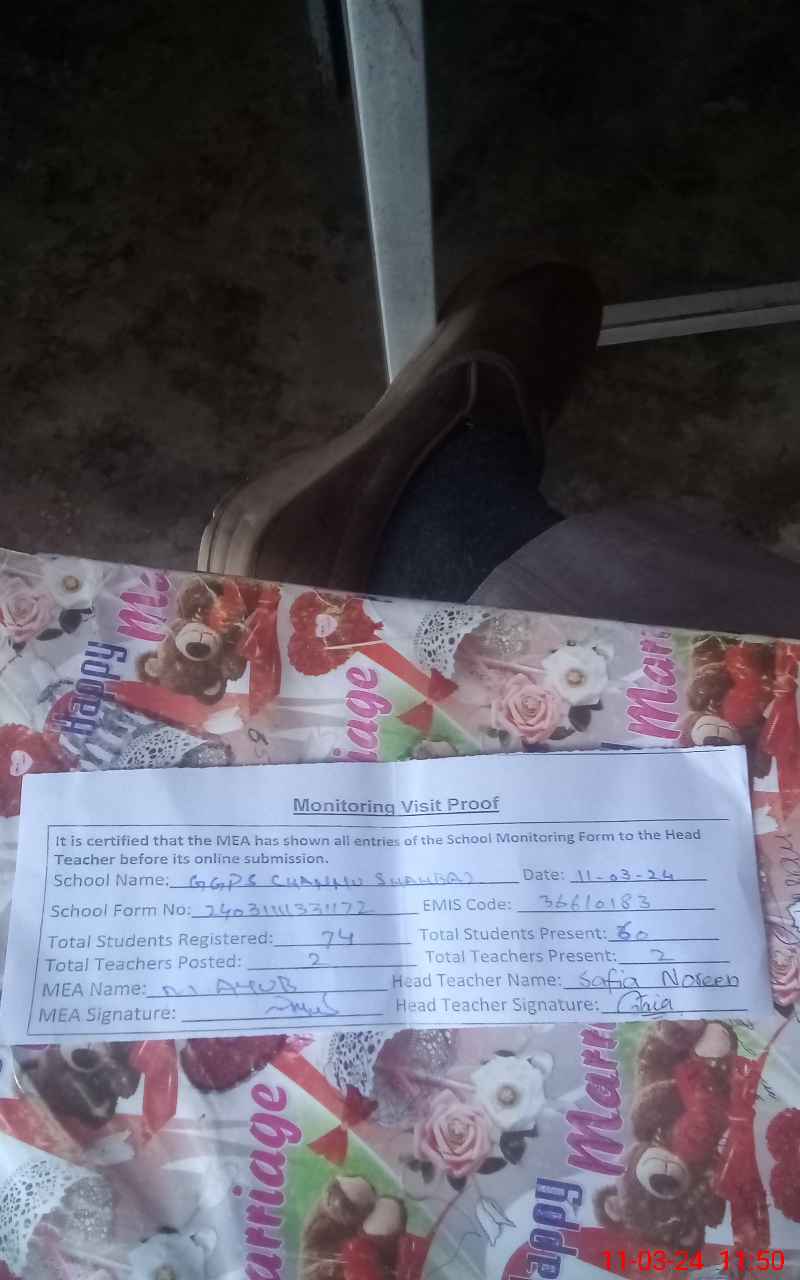 Happy
Marriage
Marri
Monitoring Visit Proof
It is certified that the MEA has shown all entries of the School Monitoring Form to the Head
Teacher before its online submission.
School Name: GGPS CHANNU Date: 11-03-24
School Form No: EMIS Code: 36610183
Total Students Registered: 74 Total Students Present: 60
Total Teachers Posted: 2 Total Teachers Present: 2
MEA Name: M AYUB Head Teacher Name: Safia Noreen
MEA Signature: Head Teacher Signature: Safia
Marriage
Happy
Marri
11-03-24 11:50